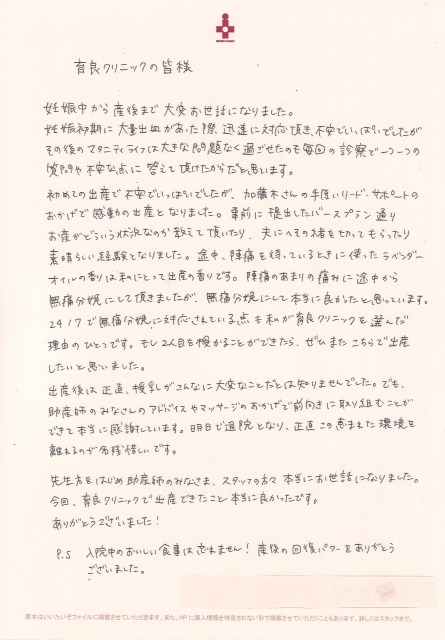 育良クリニックの皆様
妊娠中から産後まで大変お世話になりました。
妊娠初期に大量出血があった際、迅速に対応頂き、不安でいっぱいでしたが
その後のマタニティライフは大きな問題なく過ごせたのも毎回の診察で一つ一つの
質問や不安な点に答えて頂けたからだと思います。
初めての出産で不安でいっぱいでしたが、加藤木さんの手厚いリード・サポートの
おかげで感動の出産となりました。事前に提出したバースプラン通り
お産がどういう状況なのか教えて頂いたり、夫にへその緒を切ってもらったり
素晴らしい経験となりました。途中、陣痛を待っているときに使ったラベンダー
オイルの香りは私にとって出産の香りです。陣痛のあまりの痛みに途中から
無痛分娩にして頂きましたが、無痛分娩にして本当に良かったと思っています。
24/7で無痛分娩に対応されている点も私が育良クリニックを選んだ
理由のひとつです。もし2人目を授かることができたら、ぜひまたこちらで出産
したいと思いました。
出産後は正直、授乳がこんなに大変なことだとは知りませんでした。でも、
助産師のみなさんのアドバイスやマッサージのおかげで前向きに取り組むことが
できて本当に感謝しています。明日で退院となり、正直この恵まれた環境を
離れるのが名残惜しいです。
先生方をはじめ助産師のみなさま、スタッフの方々本当にお世話になりました。
今回、育良クリニックで出産できたこと本当に良かったです。
ありがとうございました!
P.S 入院中のおいしい食事は忘れません!産後の回復パワーをありがとう
ございました。
原本はいいたいぞファイルに掲載させていただきます。また、HPに個人情報を特定されない形で掲載させていただくこともあります。詳しくはスタッフまで。